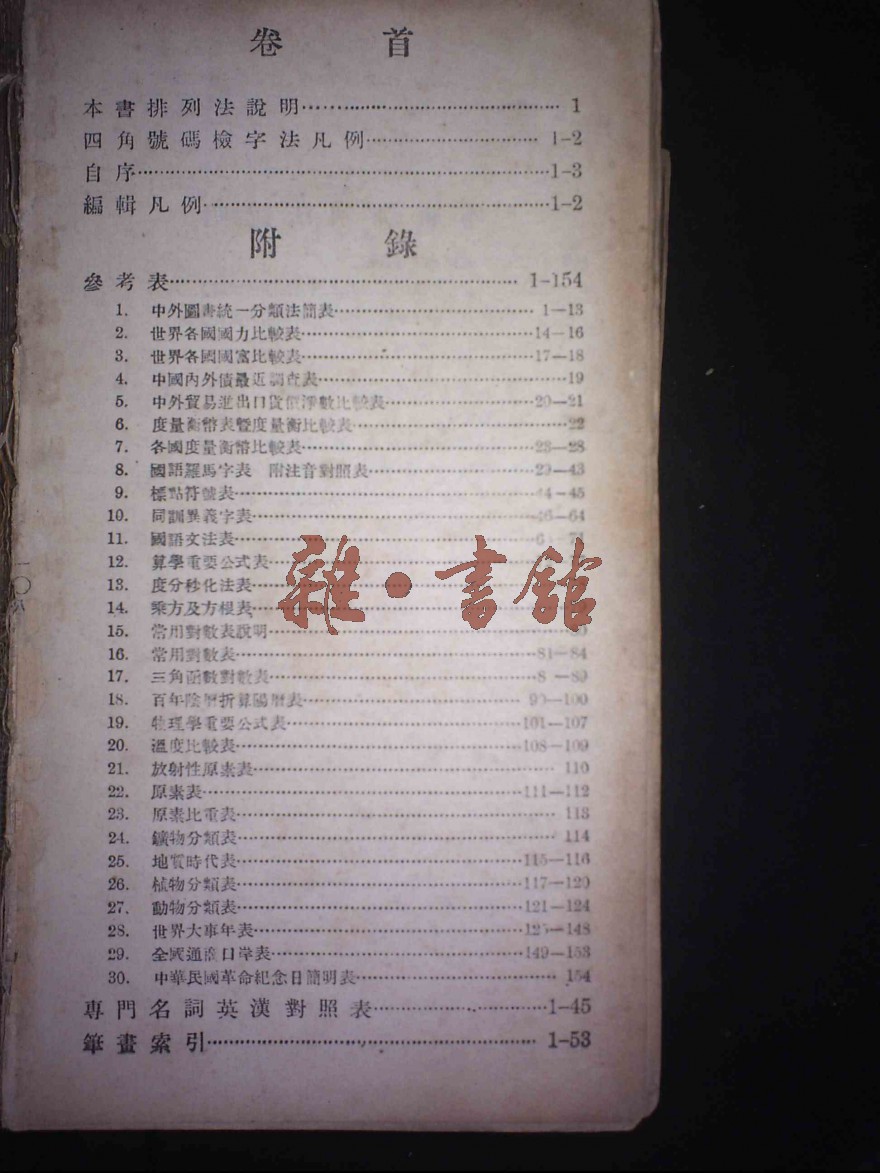 卷首
本書排列法說明 1
四角號碼檢字法凡例 1-2
自序 1-3
編輯凡例 1-2
附錄
參考表 1-154
1. 中外圖書統一分類法簡表 1—13
2. 世界各國國力比較表 14—16
3. 世界各國國富比較表 17—18
4. 中國內外債最近調查表 19
5. 中外貿易進出口貨價淨數比較表 20—21
6. 度量衡幣表暨度量衡比較表 22
7. 各國度量衡幣比較表 23—28
8. 國語羅馬字表 附注音對照表 29—43
9. 標點符號表 44—45
10. 同訓異義字表 46—64
11. 國語文法表
12. 算學重要公式表
13. 度分秒化法表
14. 乘方及方根表
15. 常用對數表說明
16. 常用對數表 81—84
17. 三角函數對數表
18. 百年陰曆折算陽曆表 90—100
19. 物理學重要公式表 101—107
20. 溫度比較表 108—109
21. 放射性原素表 110
22. 原素表 111—112
23. 原素比重表 113
24. 鑛物分類表 114
25. 地質時代表 115—116
26. 植物分類表 117—120
27. 動物分類表 121—124
28. 世界大事年表 125—148
29. 全國通商口岸表 149—153
30. 中華民國革命紀念日簡明表 154
專門名詞英漢對照表 1-45
筆畫索引 1-53
雜·書館